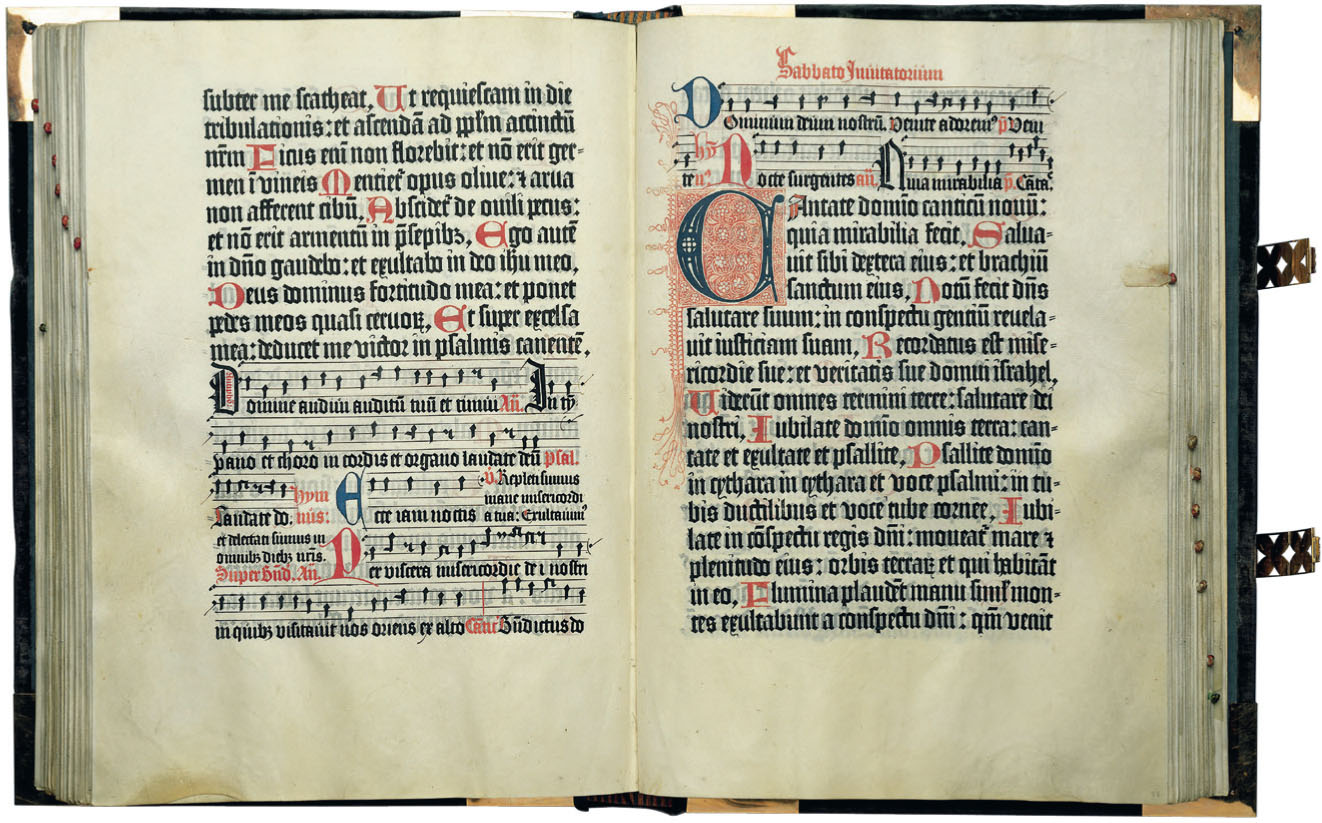 subter me scatheat, Ut requiescam in die
tribulationis: et ascendā ad pplm accinctū
nr̄m Ficus em̄ non florebit: et nō erit ger-
men ī vineis Mentiet᷑ opus olive: ⁊ arva
non afferent cibū, Abscidet᷑ de ovili pecus:
et nō erit armentū in p̄sepibꝫ, Ego autē
in dn̄o gaudebo: et exultabo in deo ihu meo,
Deus dominus fortitudo mea: et ponet
pedes meos quasi cervoꝝ, Et super excelsa
mea: deducet me victor in psalmis canentē,
Domine audivi auditū tuū et timui Añ. In tȳ
pano et choro in cordis et organo laudate deū psal.
Laudate do. hym nis: Ecce iam noctis
℣ Repleti sumus
mane misericordi
a tua: Exultavimꝰ
et delectati sumus in
omnibꝫ diebꝫ nr̄is.
Super Bn̄d. Añ. Per viscera misericordie de i nostri
in quibꝫ visitavit nos oriens ex alto Cātic Bn̄dictus do
Sabbato Invitatorium
Dominum deum nostrū. Venite adoremꝰ p̄ Veni
te hȳ nꝰ. Nocte surgentes añ. Quia mirabilia p̄. Cāta.
CAntate domīo canticū novū:
quia mirabilia fecit, Salva-
vit sibi dextera eius: et brachiū
sanctum eius, Notū fecit dn̄s
salutare suum: in conspectu genciū revela-
vit iusticiam suam, Recordatus est mise-
ricordie sue: et veritatis sue domui israhel,
Viderūt omnes termini terre: salutare dei
nostri, Iubilate domīo omnis terra: can-
tate et exultate et psallite, Psallite domīo
in cythara in cythara et voce psalmi: in tu-
bis ductilibus et voce tube cornee, Iubi-
late in cōspectu regis dn̄i: moveat᷑ mare ⁊
plenitudo eius: orbis terraꝝ et qui habitāt
in eo, Flumina plaudēt manu simɫ mon-
tes exultabunt a conspectu dn̄i: qm̄ venit